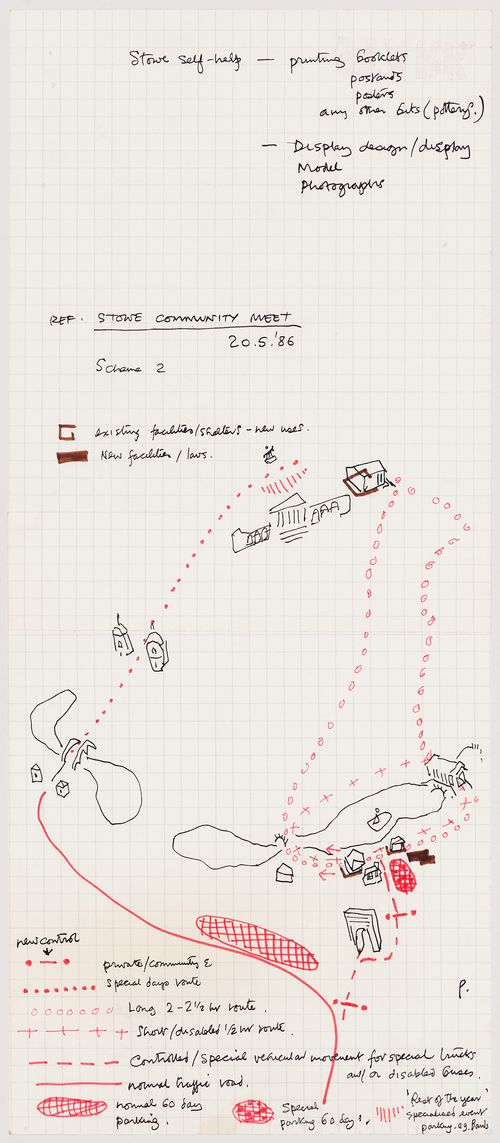 Stowe self-help — printing booklets
postcards
posters
any other bits (pottery.)
— Display design/display
Model
Photographs
REF. STOWE COMMUNITY MEET
20.5.'86
Scheme 2
existing facilities/shelters - new uses.
New facilities / lavs.
new control
private/community E
special days route
Long 2 - 2½ hr route.
Short/disabled ½ hr route.
Controlled/special vehicular movement for special trucks
and/or disabled buses.
normal traffic road.
normal 60 day
parking.
Special
parking 60 days.
'Rest of the year'
specialised event
parking. e.g. Bands
P.